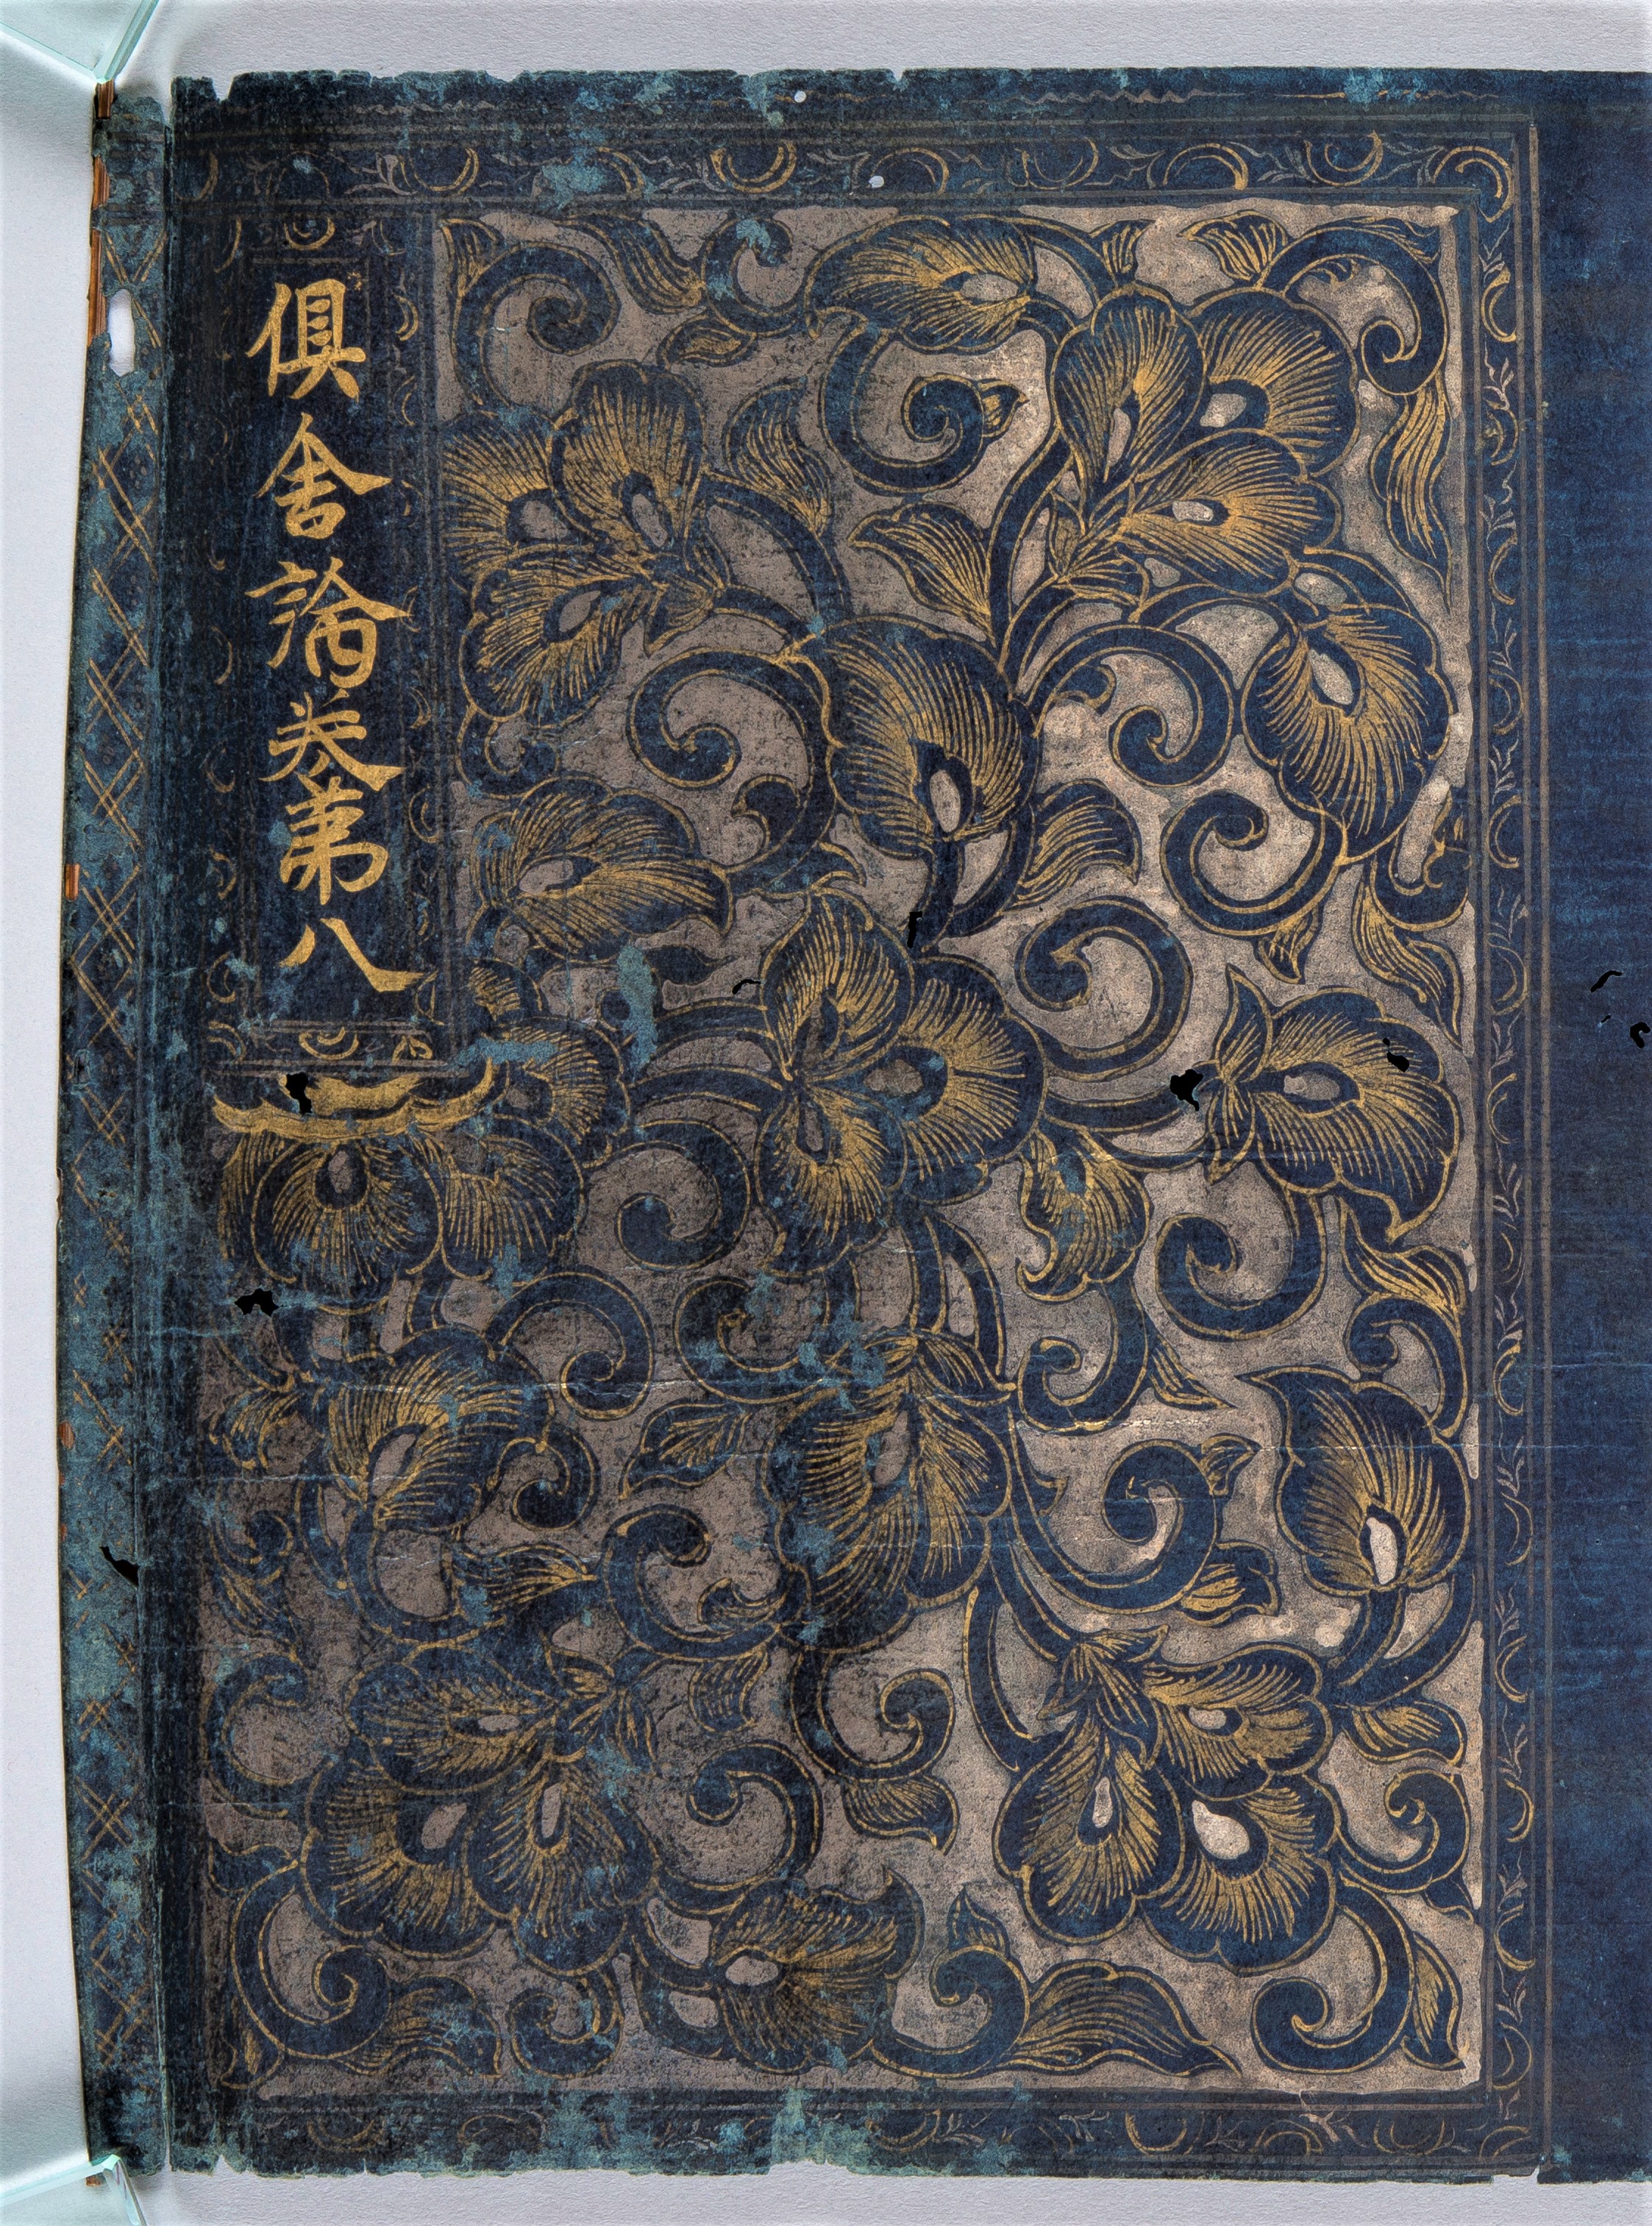 俱舍論卷第八